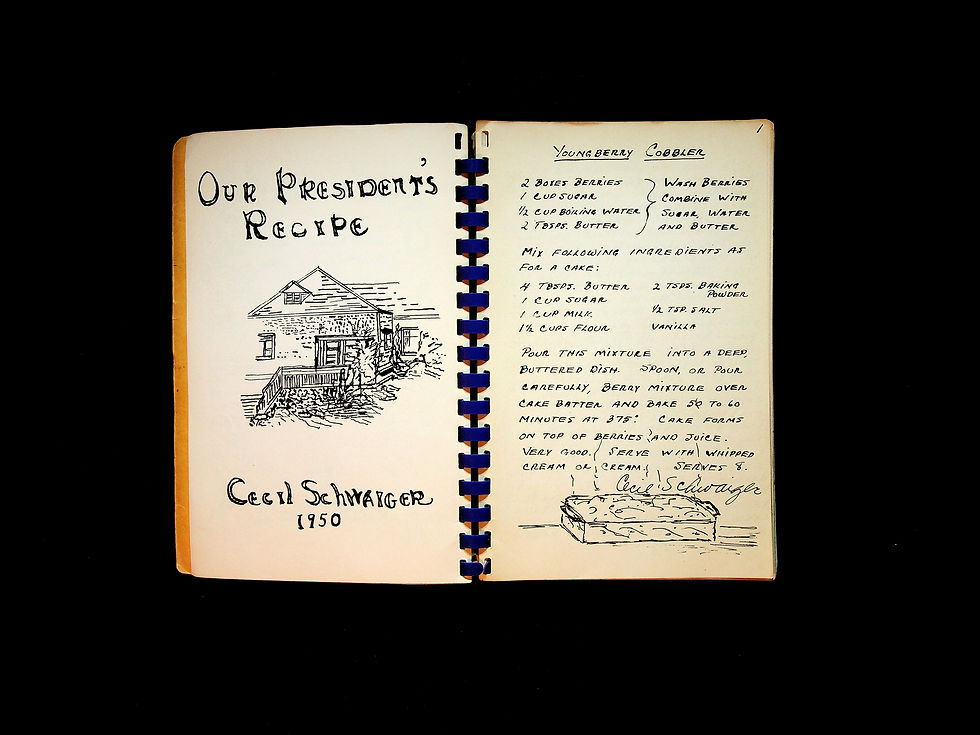 OUR PRESIDENT'S
RECIPE
CECIL SCHWAIGER
1950
1
YOUNGBERRY COBBLER
2 BOXES BERRIES
1 CUP SUGAR
½ CUP BOILING WATER
2 TBSPS. BUTTER
WASH BERRIES
COMBINE WITH
SUGAR, WATER
AND BUTTER
MIX FOLLOWING INGREDIENTS AS
FOR A CAKE:
4 TBSPS. BUTTER
1 CUP SUGAR
1 CUP MILK
1½ CUPS FLOUR
2 TSPS. BAKING
POWDER
½ TSP. SALT
VANILLA
POUR THIS MIXTURE INTO A DEEP,
BUTTERED DISH. SPOON, OR POUR
CAREFULLY, BERRY MIXTURE OVER
CAKE BATTER AND BAKE 50 TO 60
MINUTES AT 375° CAKE FORMS
ON TOP OF BERRIES AND JUICE.
VERY GOOD. SERVE WITH WHIPPED
CREAM OR CREAM. SERVES 8.
Cecil Schwaiger